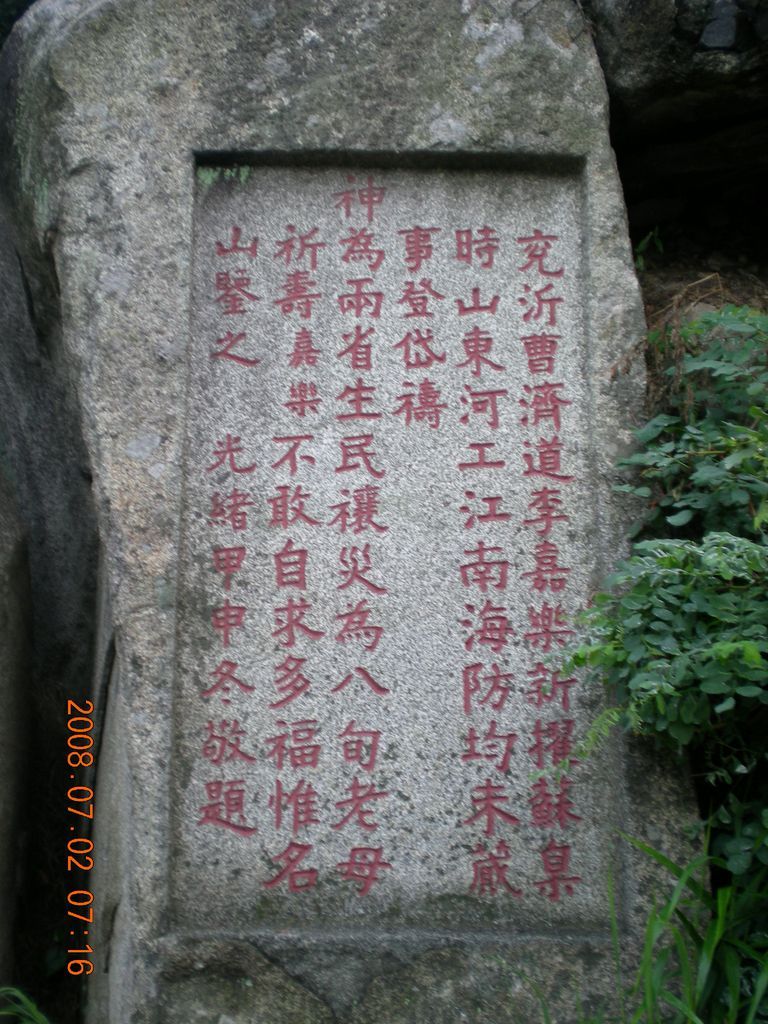 兗沂曹濟道李嘉樂新擢蘇臬
時山東河工江南海防均未蕆
事登岱禱
神為兩省生民禳災為八旬老母
祈壽嘉樂不敢自求多福惟名
山鑒之 光緒甲申冬敬題
2008.07.02 07:16